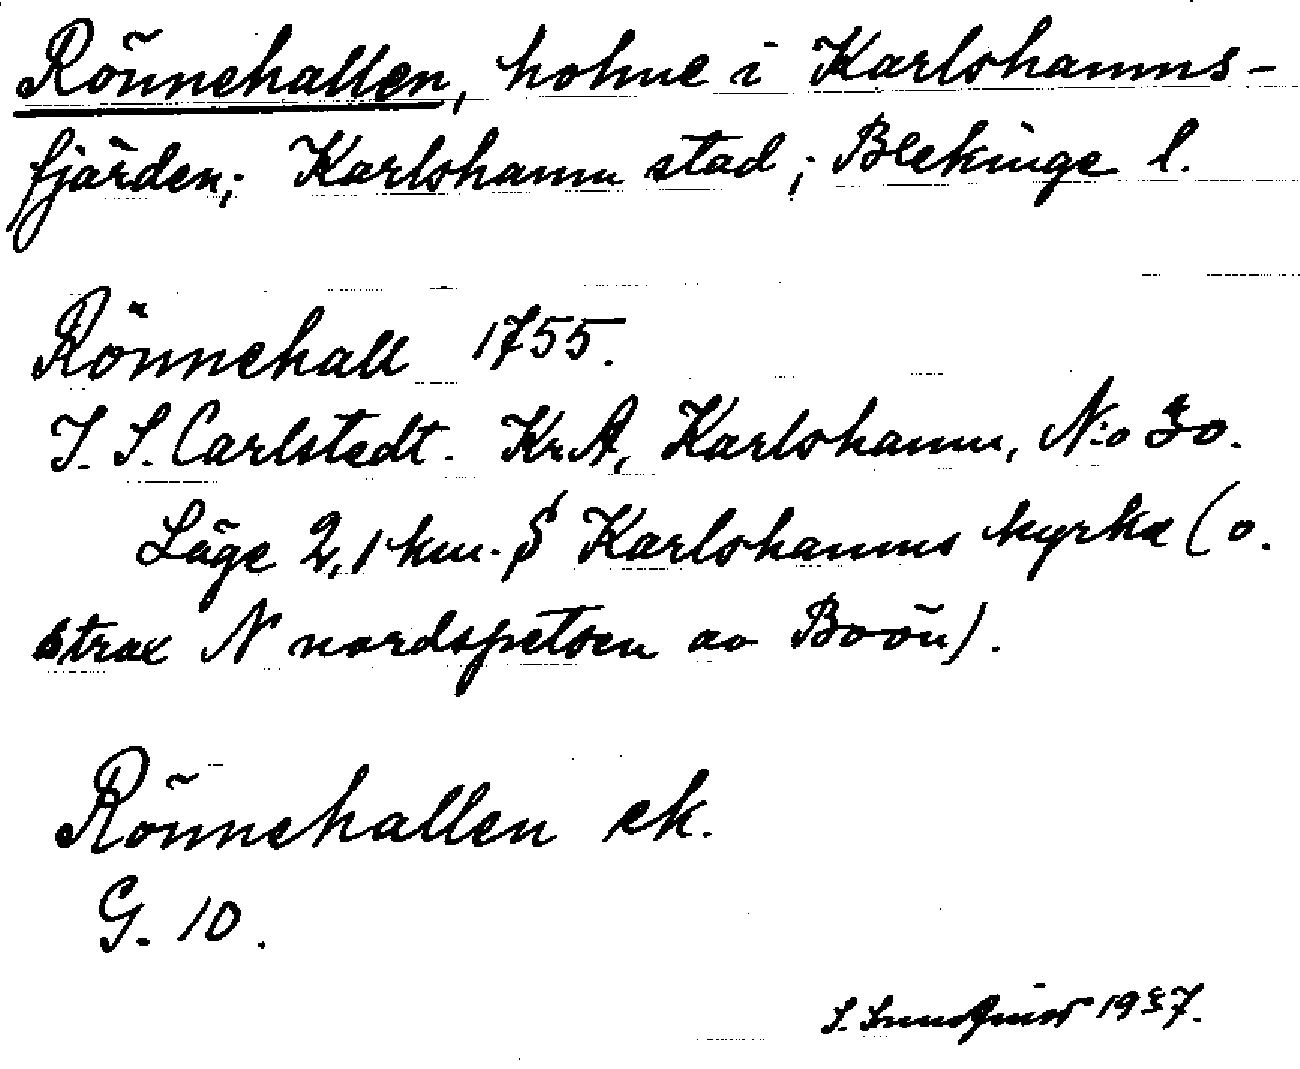 Rönnehallen, holme i Karlshamns-
fjärden; Karlshamn stad; Blekinge l.
Rönnehall 1755.
I. S. Carlstedt. Kr.A, Karlshamn, N:o 30.
Läge 2,1 km. S Karlshamns kyrka (o.
strax N nordspetsen av Boön).
Rönnehallen ek.
G. 10.
1937.